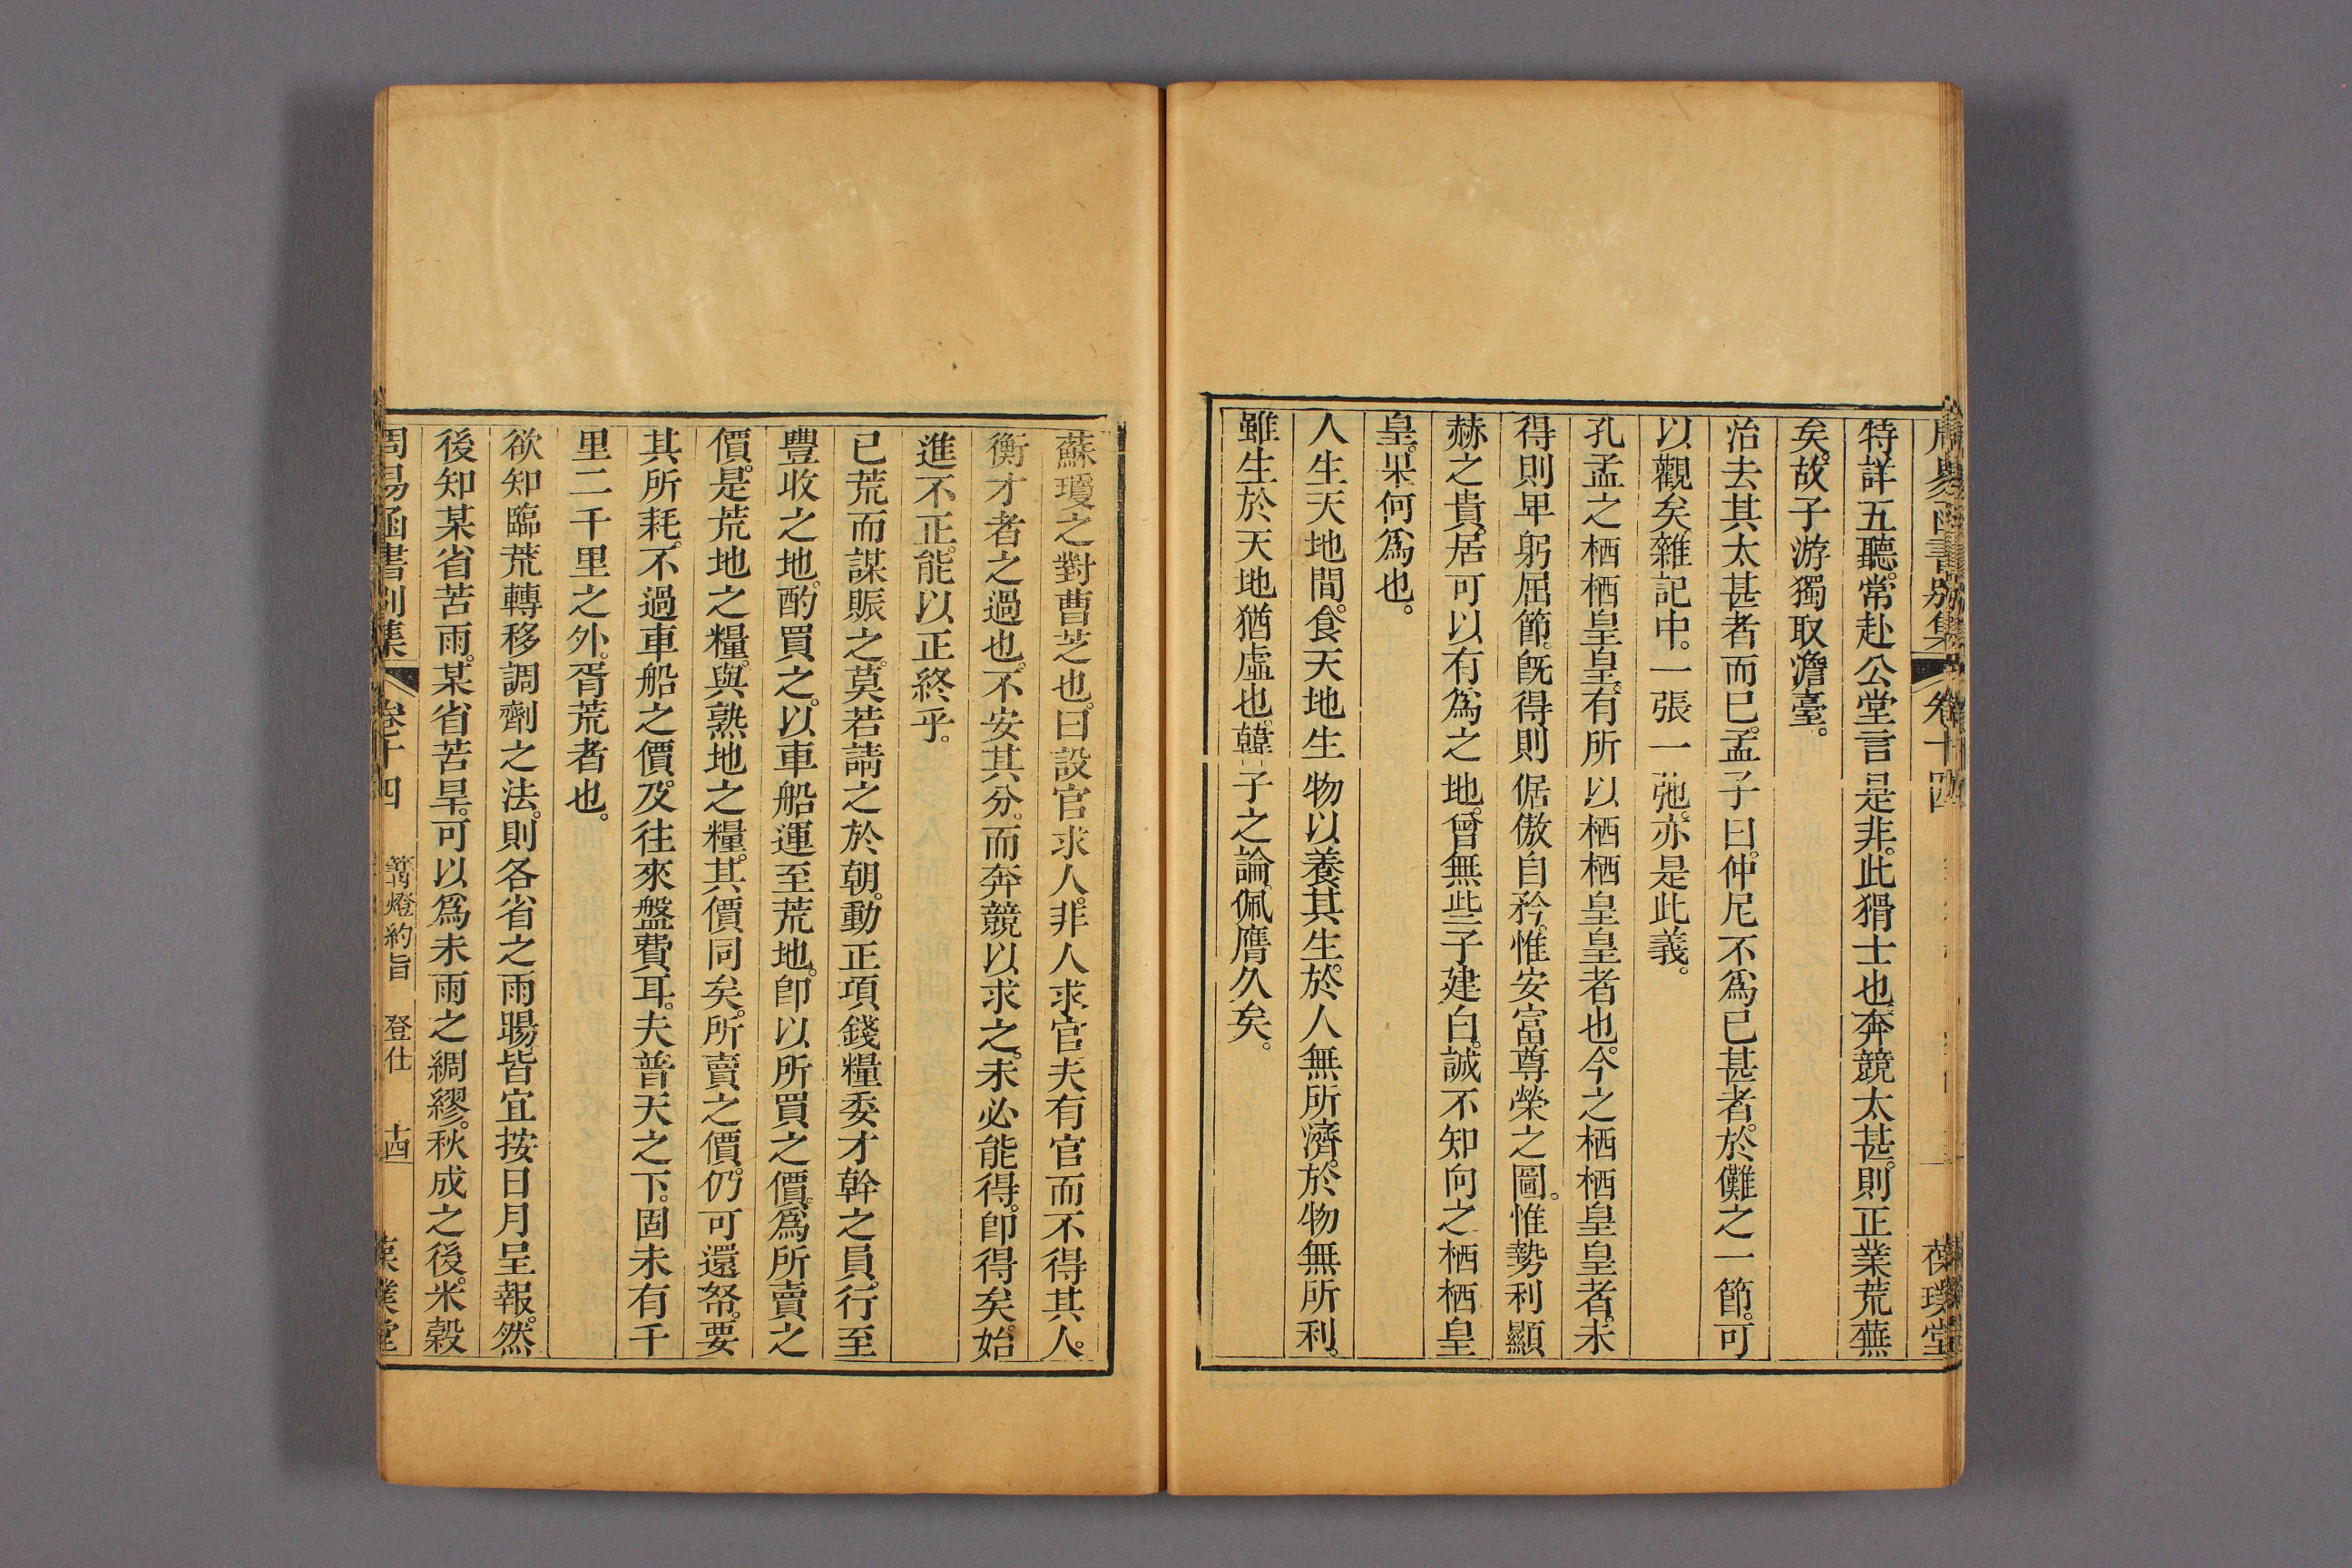 周易函書別集 卷十四 葆璞堂
特詳五聽。常赴公堂言是非。此猾士也。奔競太甚。則正業荒蕪
矣。故子游獨取澹臺。
治去其太甚者而已。孟子曰。仲尼不爲已甚者。於儺之一節。可
以觀矣。雜記中。一張一弛。亦是此義。
孔孟之栖栖皇皇。有所以栖栖皇皇者也。今之栖栖皇皇者。未
得則卑躬屈節。旣得則倨傲自矜。惟安富尊榮之圖。惟勢利顯
赫之貴。居可以有爲之地。曾無些子建白。誠不知向之栖栖皇
皇。果何爲也。
人生天地間。食天地生物以養其生。於人無所濟。於物無所利。
雖生於天地猶虛也。韓子之論。佩膺久矣。
蘇瓊之對曹芝也。曰設官求人。非人求官夫有官而不得其人。
衡才者之過也。不安其分。而奔競以求之。未必能得。卽得矣。始
進不正。能以正終乎。
已荒而謀賑之。莫若請之於朝。動正項錢糧委才幹之員。行至
豐收之地。酌買之。以車船運至荒地。卽以所買之價。爲所賣之
價。是荒地之糧。與熟地之糧。其價同矣。所賣之價。仍可還帑。要
其所耗。不過車船之價。及往來盤費耳。夫普天之下。固未有千
里二千里之外。胥荒者也。
欲知臨荒轉移調劑之法。則各省之雨暘。皆宜按日月呈報。然
後知某省苦雨。某省苦旱。可以爲未雨之綢繆。秋成之後。米穀
周易函書別集 卷十四 篝燈約旨 登仕 十四 葆璞堂